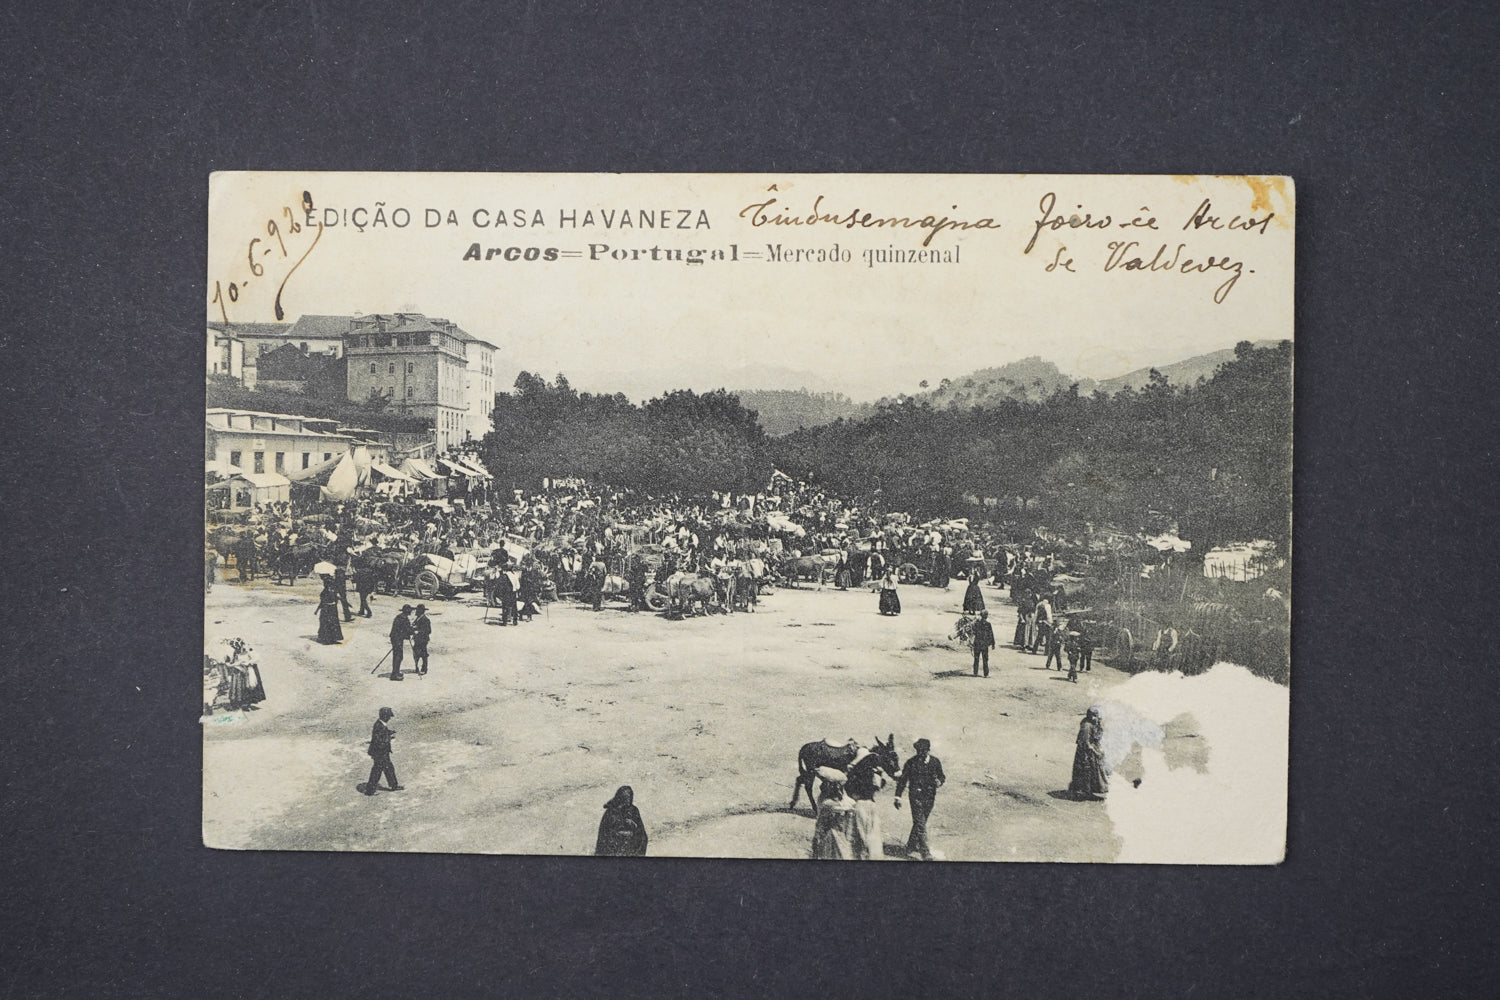 EDIÇÃO DA CASA HAVANEZA
Arcos=Portugal=Mercado quinzenal
10-6-920
Ĉiudusemajna foiro ĉe Arcos
de Valdevez.